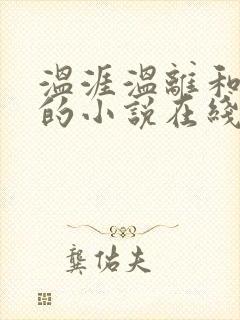 温涯温離和
的小说在綫
龚佑夫